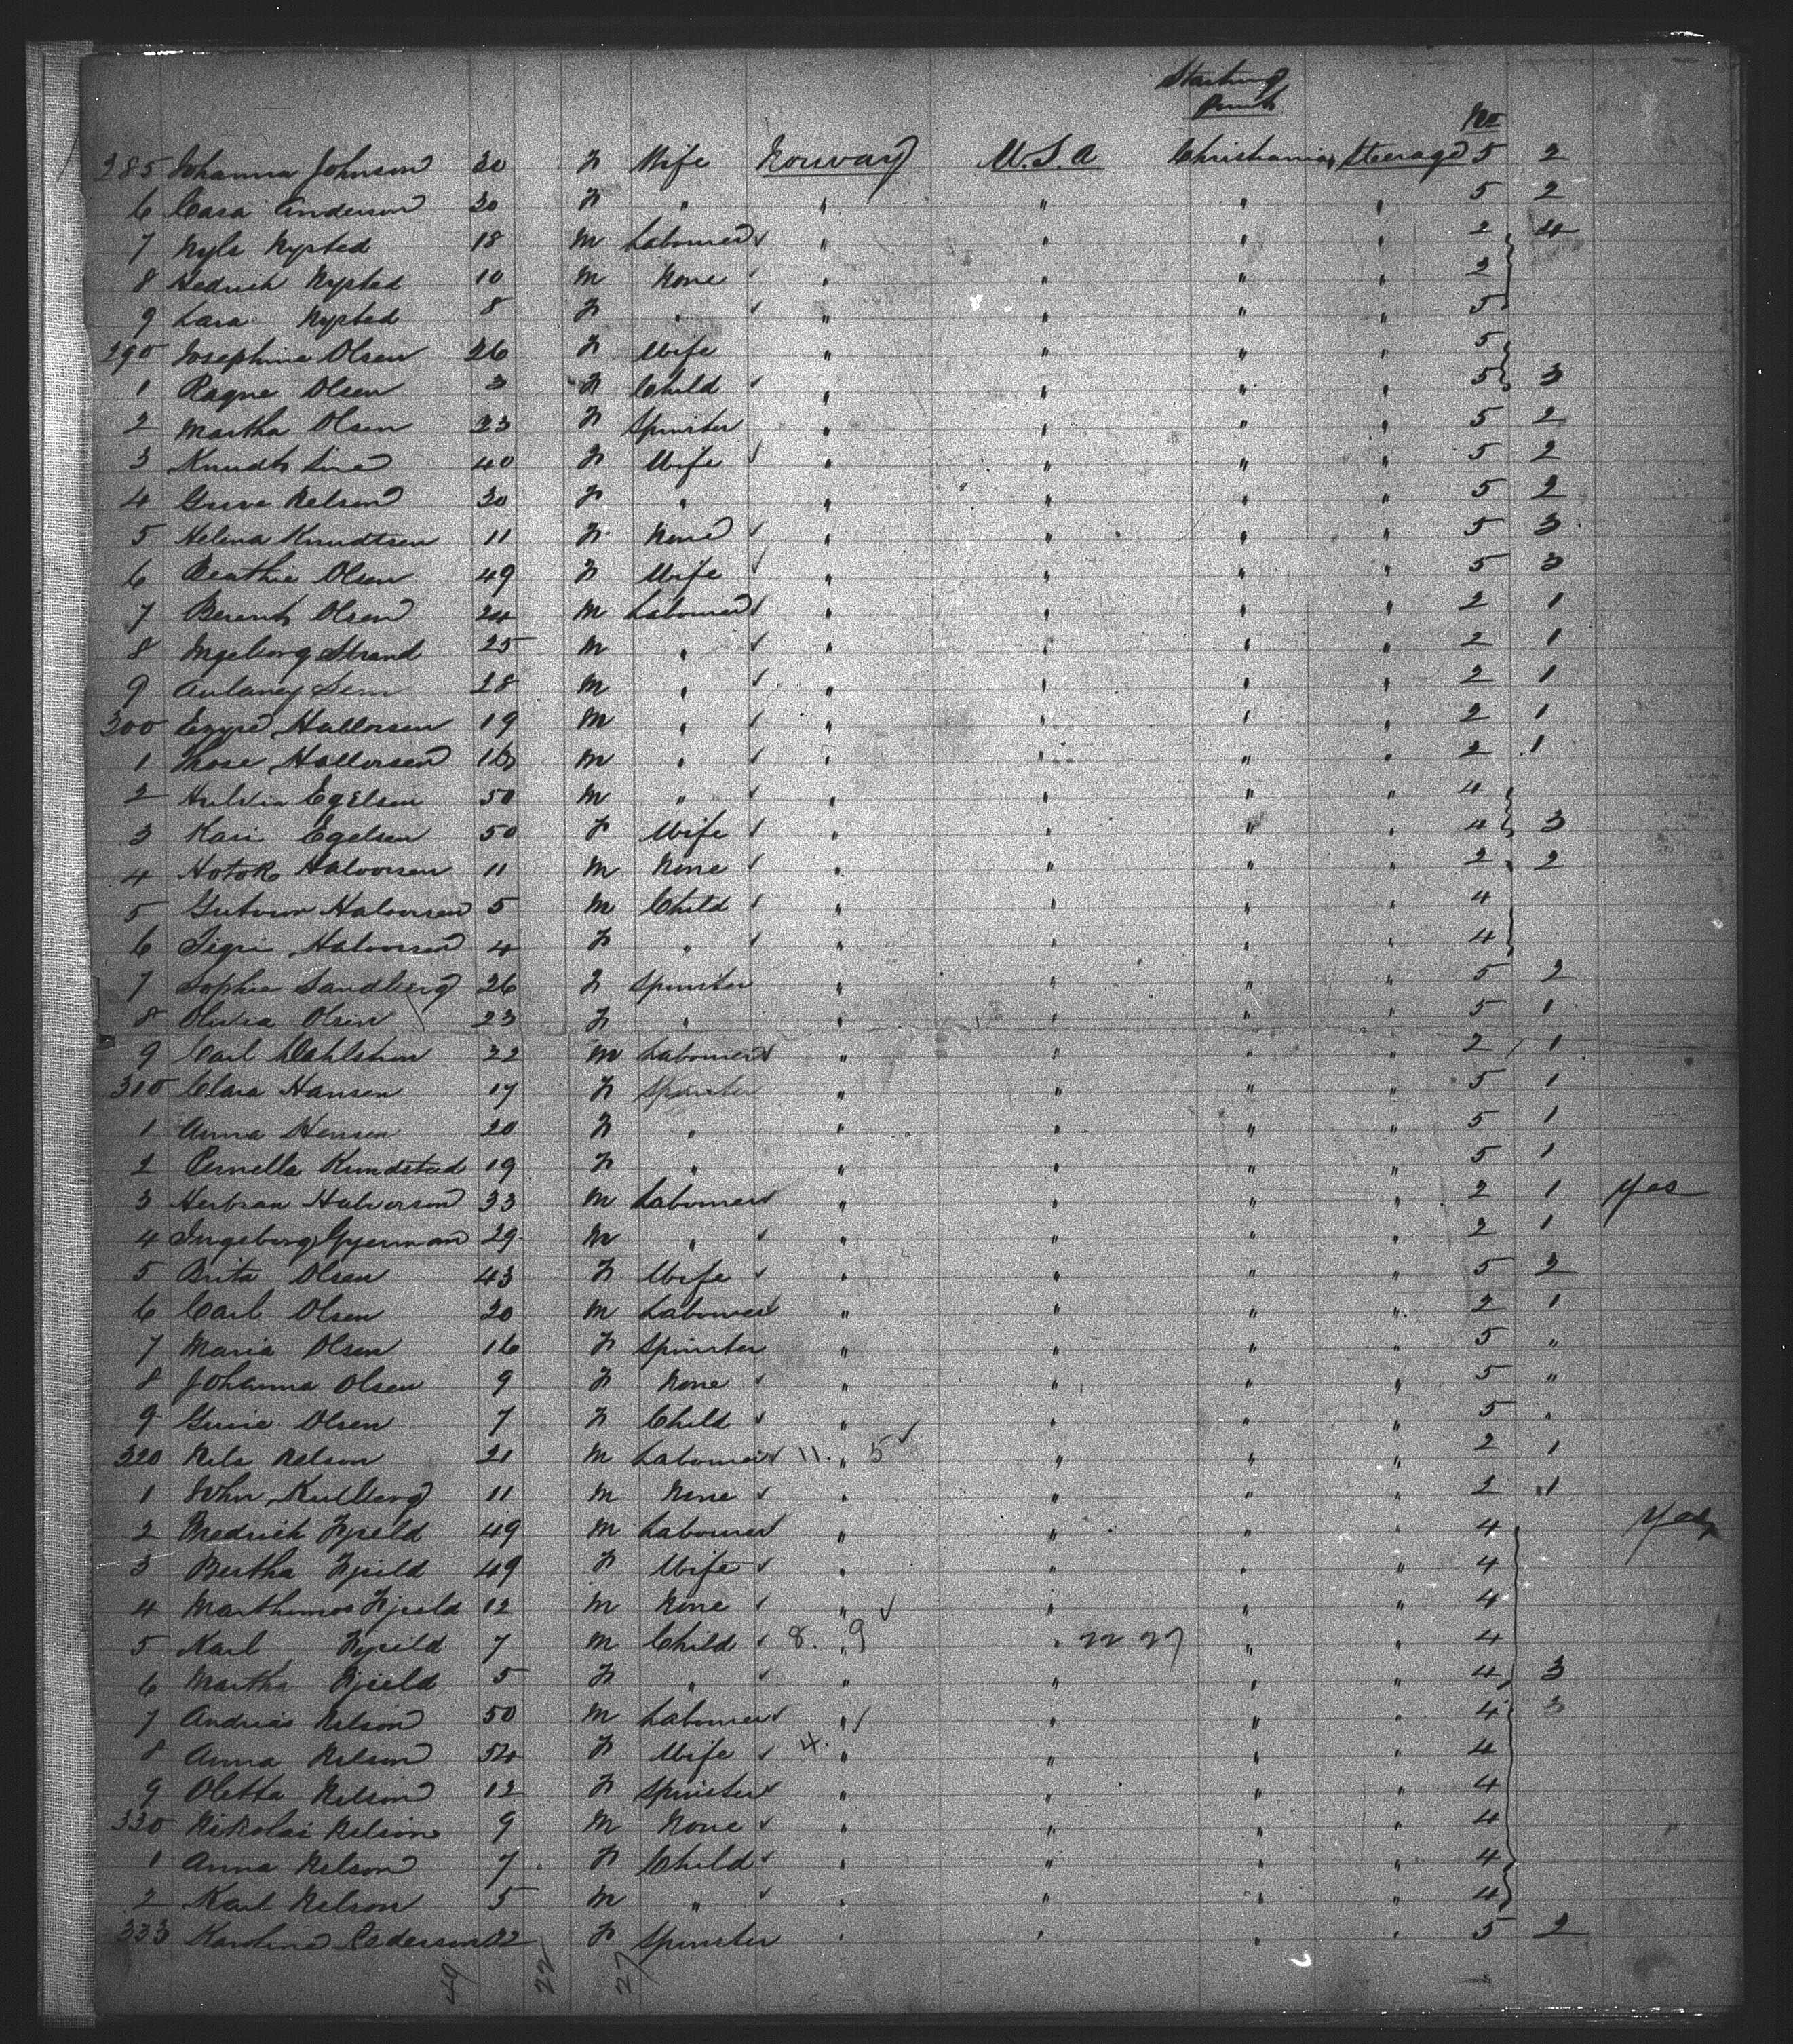 Starting
Point
No
285 Johanna Johnson 30 F Wife Norway U.S.A Christiania Steerage 5 2
6 Cara Anderson 30 F " " " " " 5 2
7 Nyls Nysted 18 M Labourer " " " " 2 4
8 Hedrick Nysted 10 M None " " " " 2
9 Lara Nysted 8 F " " " " " 5
290 Josephine Olsen 26 F Wife " " " " 5
1 Ragne Olsen 3 F Child " " " " 5 3
2 Martha Olsen 23 F Spinster " " " " 5 2
3 Knudts Line 40 F Wife " " " " 5 2
4 Guve Nelson 30 F " " " " " 5 2
5 Helena Knudtsen 11 F None " " " " 5 3
6 Beathie Olsen 49 F Wife " " " " 5 3
7 Berent Olsen 24 M Labourer " " " " 2 1
8 Ingeborg Strand 25 M " " " " " 2 1
9 Aulaney Sem 28 M " " " " " 2 1
300 Hallorsen 19 M " " " " " 2 1
1 Hallorsen M " " " " " 2 1
2 Egelsen 50 M " " " " " 4
3 Kari Egelsen 50 F Wife " " " " 4 3
4 Hotok Halvorsen 11 M None " " " " 2 2
5 Halvorsen 5 M Child " " " " 4
6 Sigri Halvorsen 4 F " " " " " 4
7 Sophie Sandberg 26 F Spinster " " " " 5 2
8 Olivia Olsen 23 F " " " " " 5 1
9 Carl Dahlstrom 22 M Labourer " " " " 2 1
310 Clara Hansen 17 F Spinster " " " " 5 1
1 Anna Hensen 20 F " " " " " 5 1
2 Pernella Kundstad 19 F " " " " " 5 1
3 Herbran Halvorson 33 M Labourer " " " " 2 1 Yes
4 Ingeborg Gjerman 29 M " " " " " 2 1
5 Brita Olsen 43 F Wife " " " " 5 2
6 Carl Olsen 20 M Labourer " " " " 2 1
7 Maria Olsen 16 F Spinster " " " " 5 "
8 Johanna Olsen 9 F None " " " " 5 "
9 Gurie Olsen 7 F Child " " " " 5 "
320 Nils Nelson 21 M Labourer 11. " 5 " " " 2 1
1 John Kulberg 11 M None " " " " 2 1
2 Fredrick Fjeld 49 M Labourer " " " " 4 Yes
3 Bertha Fjeld 49 F Wife " " " " 4
4 Marthinus Fjeld 12 M None " " " " 4
5 Karl Fjeld 7 M Child 8. " 9 " 22 27 " " 4
6 Martha Fjeld 5 F " " " " " 4 3
7 Andrias Nelson 50 M Labourer " " " " 4 3
8 Anna Nelson 54 F Wife 4. " " " " 4
9 Oletta Nelson 12 F Spinster " " " " 4
330 Nikolai Nelson 9 M None " " " " 4
1 Anna Nelson 7 F Child " " " " 4
2 Karl Nelson 5 M " " " " " 4
333 Karoline Pederson 22 F Spinster " " " " 5 2
49 22 27